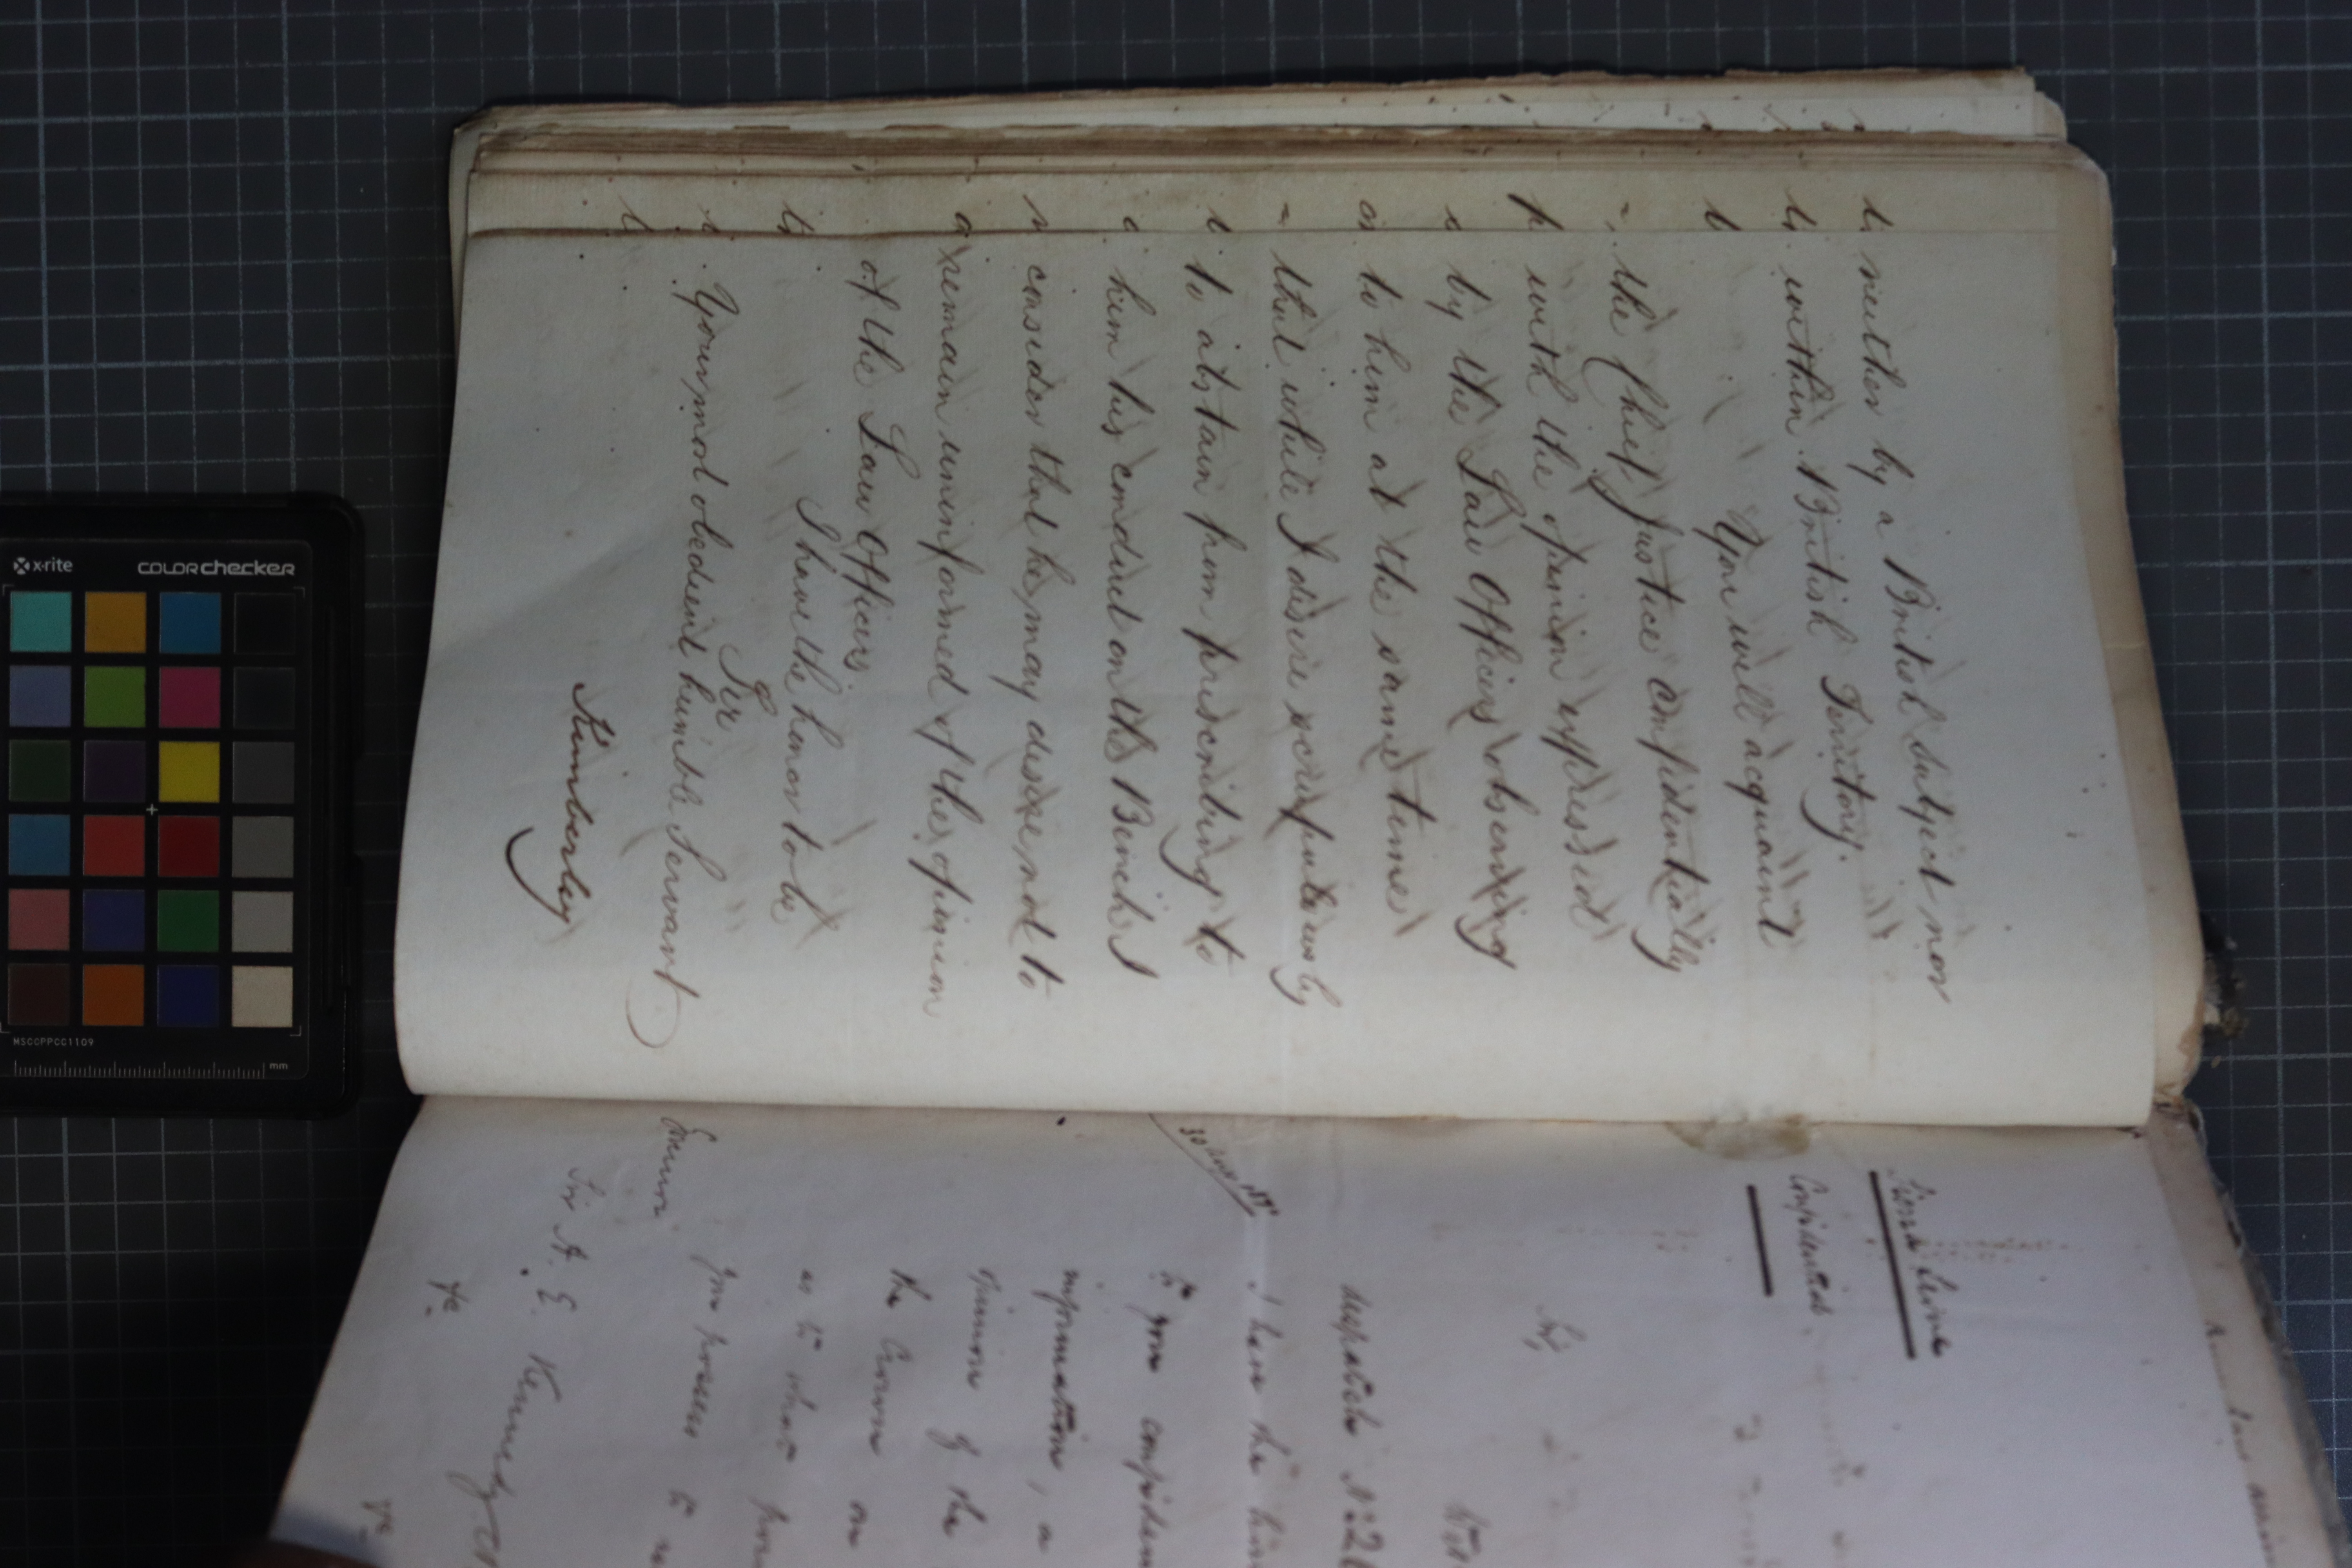 neither by a British Subject nor
within British Territory.
You will acquaint
the Chief Justice Confidentially
with the opinion expressed
by the Law Officers observing
to him at the same time
that while I desire scrupulously
to abstain from prescribing to
him his conduct on the Bench I
consider that he may desire not to
remain uninformed of the opinion
of the Law Officers
I have the honor to be
Sir
Your most obedient humble Servant
Kimberley
Sierra Leone
Confidential
Sir,
despatch No. 2
I have the
to your
information, a
opinion of the
the Crown on
as to what
you possess to
Sir A. E. Kennedy
&c.
&c
x-rite
colorchecker
MSCCPPCC1109
mm